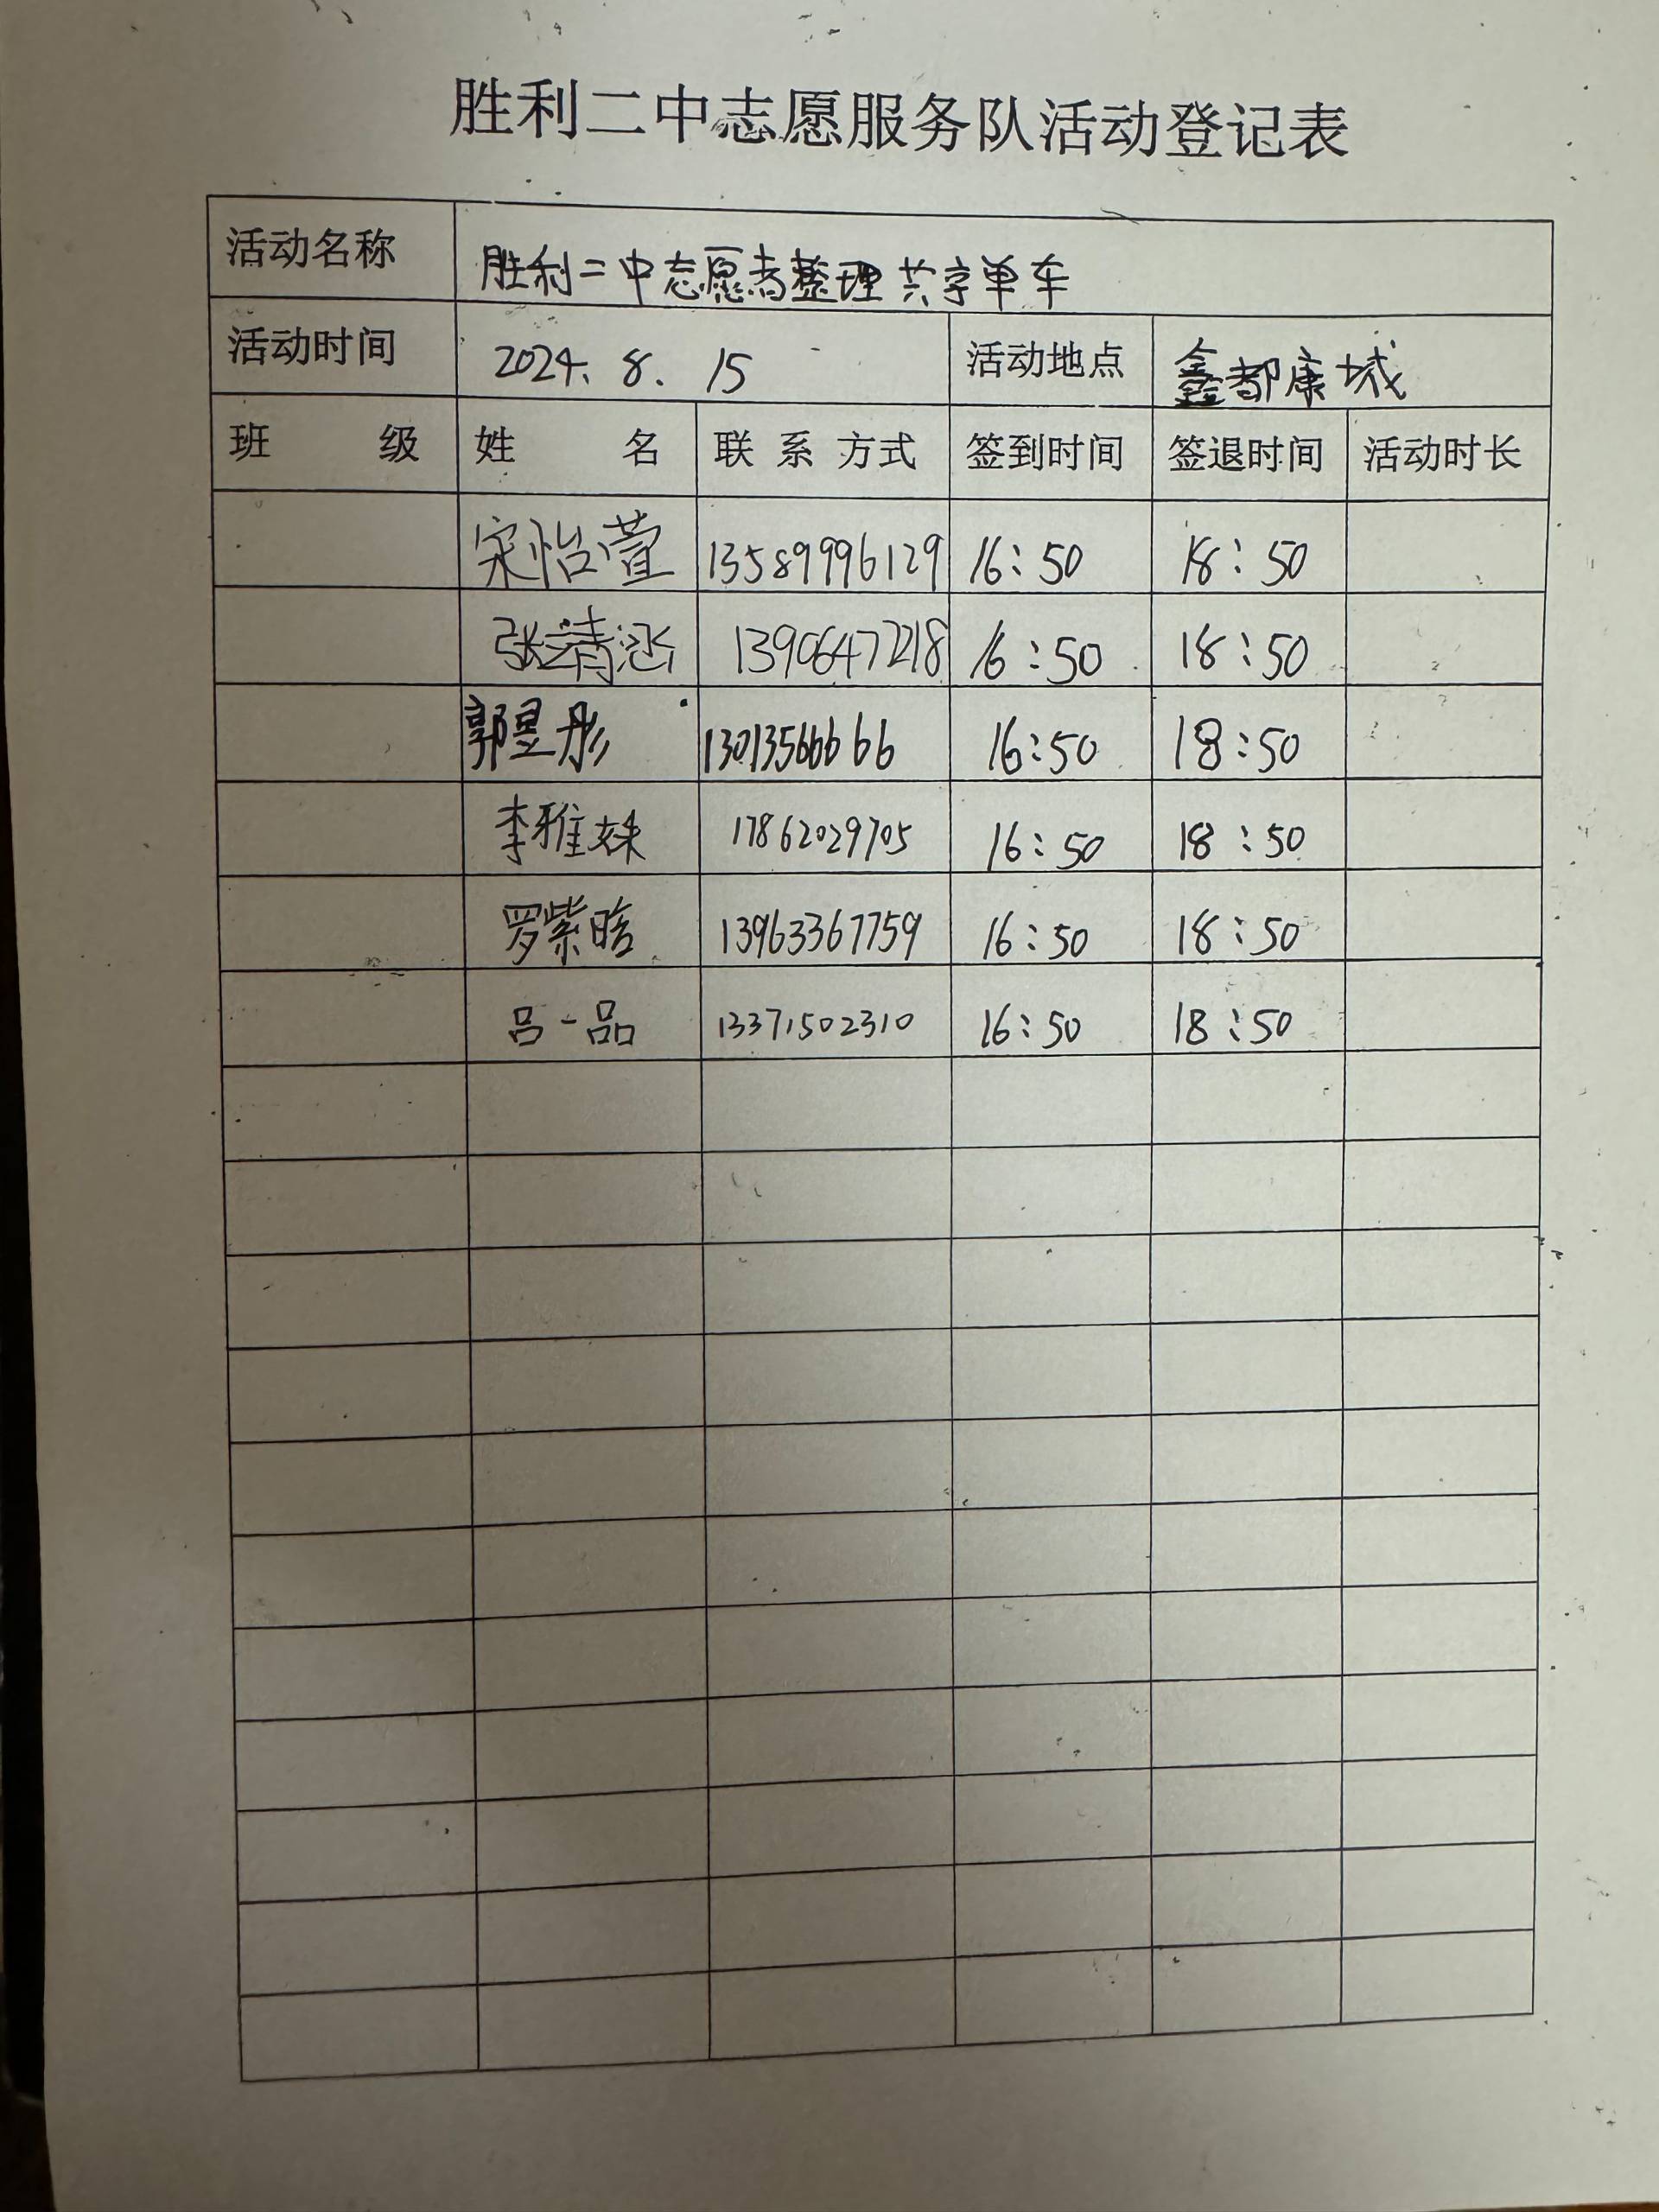 胜利二中志愿服务队活动登记表
活动名称 胜利二中志愿者整理共享单车
活动时间 2024.8.15 活动地点 鑫都康城
班级 姓名 联系方式 签到时间 签退时间 活动时长
宋怡萱 13589996129 16:50 18:50
张靖涵 13906477218 16:50 18:50
郭昱彤 13013566666 16:50 18:50
李雅姝 17862029705 16:50 18:50
罗紫晗 13963367759 16:50 18:50
吕一品 13371502310 16:50 18:50